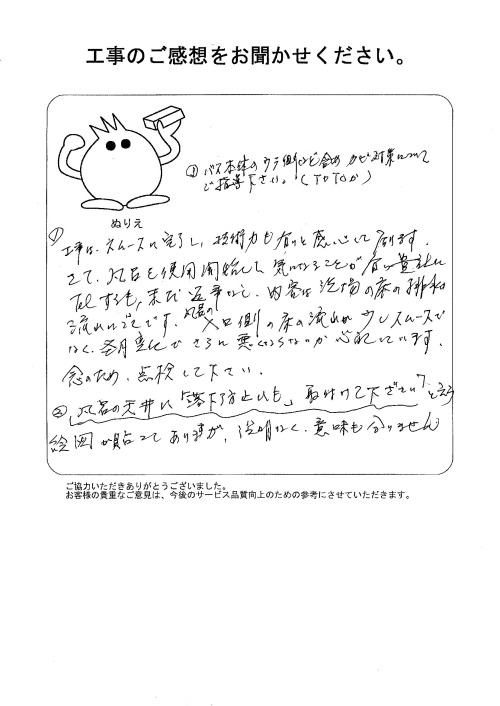 工事のご感想をお聞かせください。
③ バス本体のウラ側など含め カビ対策について
ご指導下さい。(TOTOが)
ぬりえ
① 工事は、スムースに完了し、技術力も有りと感心して居ります。
さて、風呂を使用開始して、気になることが有り貴社に
Telするも、未だ返事なし。内容は洗場の床の排水の
流れにです。風呂の入口側の床の流れが少しスムースで
なく、劣化でさらに悪くならないか心配しています。
念のため、点検して下さい。
② 風呂の天井に「落下防止ひも」取付けて下ださい?と云う
絵図が貼ってありますが、説明なく、意味も分りません
ご協力いただきありがとうございました。
お客様の貴重なご意見は、今後のサービス品質向上のための参考にさせていただきます。